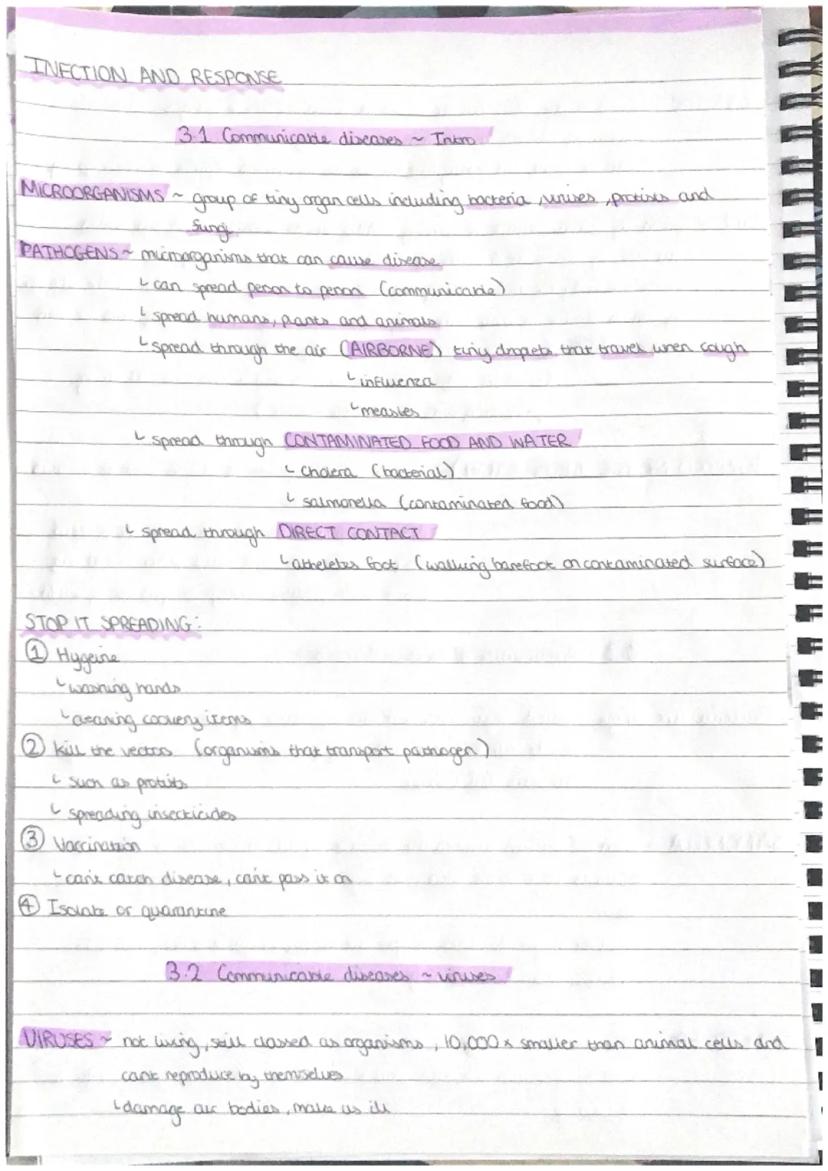 INFCTION AND RESPONSE
3.1 Communicable diseases ~ Intro
MICROORGANISMS ~ group of tiny organ cells including bacteria, viruses, protists and
fungi
PATHOGENS ~ microrganisms that can cause disease
↳ can spread person to person (communicable)
↳ spread humans, plants and animals
↳ spread through the air (AIRBORNE) tiny droplets that travel when cough
↳ influenza
↳ measles
↳ spread through CONTAMINATED FOOD AND WATER
↳ cholera (bacterial)
↳ salmonella (contaminated food)
↳ spread through DIRECT CONTACT
↳ atheletes foot (walking barefoot on contaminated surface)
STOP IT SPREADING:
① Hygeine
↳ washing hands
↳ cleaning cookery items
② Kill the vectors (organisms that transport pathogen)
↳ such as protists
↳ spreading insecticides
③ Vaccination
↳ can't catch disease, can't pass it on
④ Isolate or quarantine
3.2 Communicable diseases ~ viruses
VIRUSES ~ not living, still classed as organisms, 10,000 x smaller than animal cells and
can't reproduce by themselves
↳ damage our bodies, make us ill